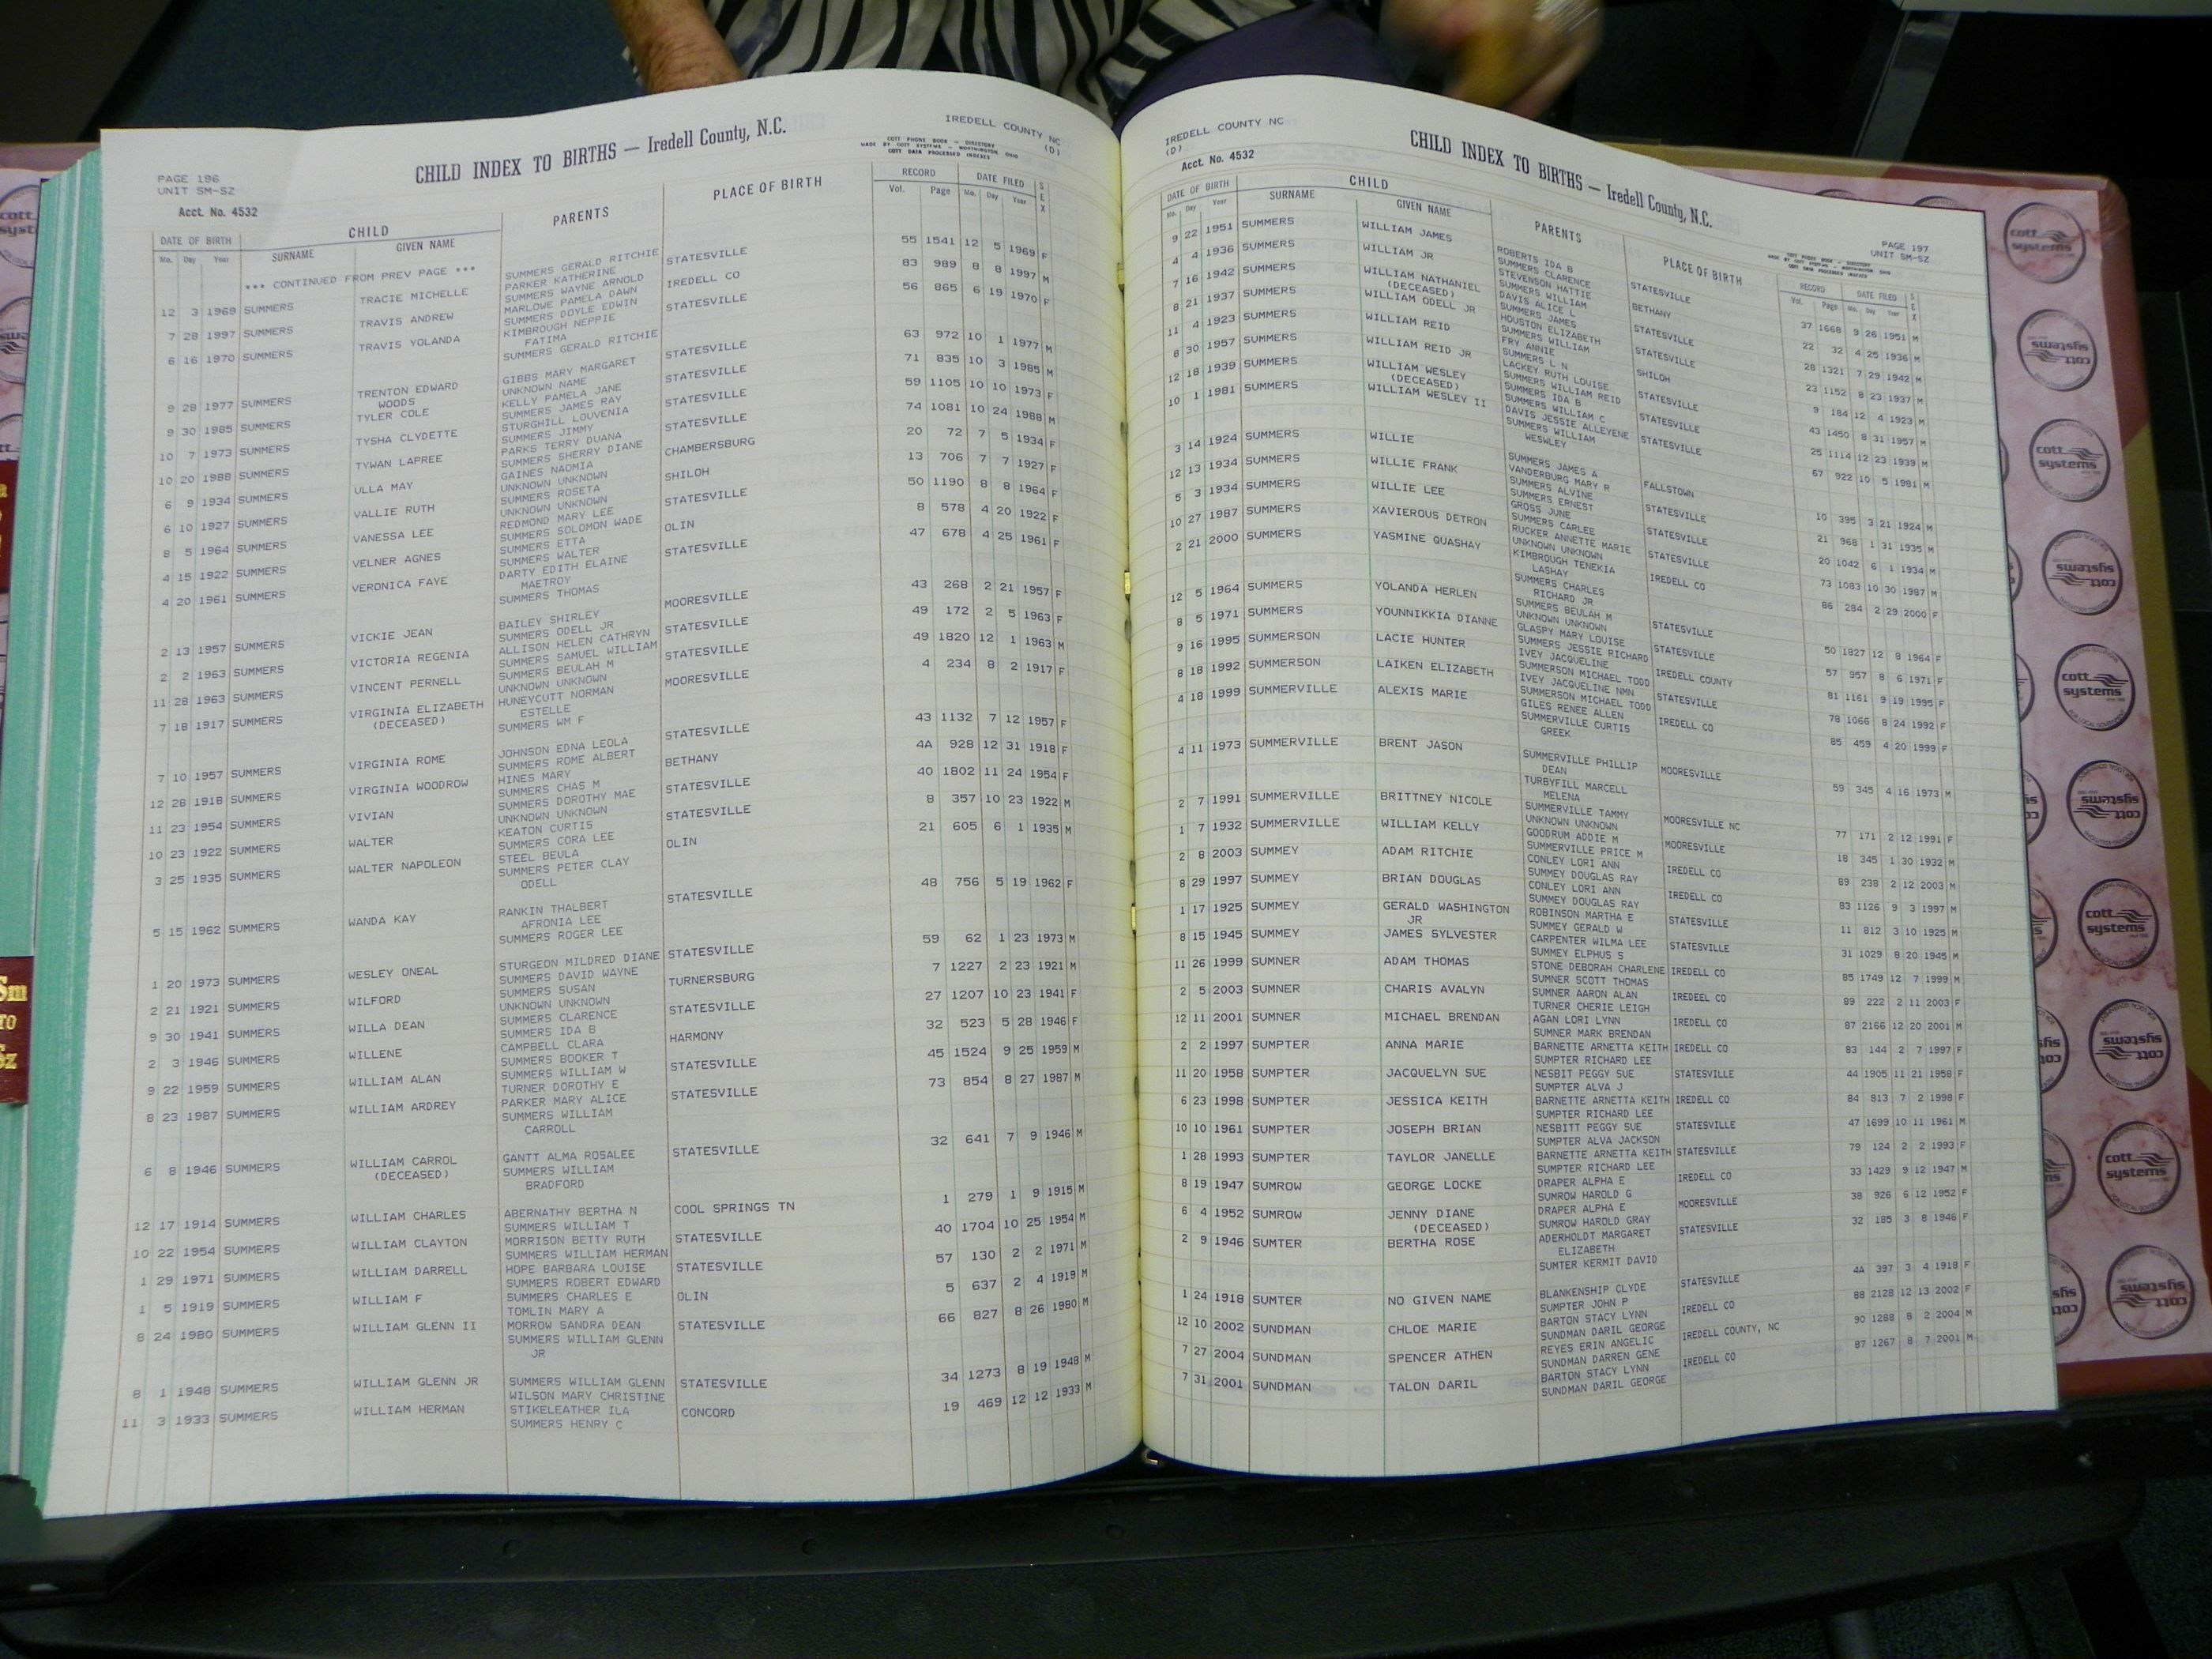 PAGE 196
UNIT SM-SZ
CHILD INDEX TO BIRTHS — Iredell County, N.C.
COTT PHONE BOOK - DIRECTORY
MADE BY COTT SYSTEMS - WORTHINGTON, OHIO
COTT DATA PROCESSED INDEXES
IREDELL COUNTY NC
(D)
Acct. No. 4532
DATE OF BIRTH CHILD PARENTS PLACE OF BIRTH RECORD DATE FILED SEX
Mo. Day Year SURNAME GIVEN NAME Vol. Page Mo. Day Year
*** CONTINUED FROM PREV PAGE *** SUMMERS GERALD RITCHIE
12 3 1969 SUMMERS TRACIE MICHELLE PARKER KATHERINE STATESVILLE 55 1541 12 5 1969 F
SUMMERS WAYNE ARNOLD
7 28 1997 SUMMERS TRAVIS ANDREW MARLOWE PAMELA DAWN IREDELL CO 83 989 8 8 1997 M
SUMMERS DOYLE EDWIN
6 16 1970 SUMMERS TRAVIS YOLANDA KIMBROUGH NEPPIE STATESVILLE 56 865 6 19 1970 F
FATIMA
SUMMERS GERALD RITCHIE
9 28 1977 SUMMERS TRENTON EDWARD GIBBS MARY MARGARET STATESVILLE 63 972 10 1 1977 M
WOODS UNKNOWN NAME
9 30 1985 SUMMERS TYLER COLE KELLY PAMELA JANE STATESVILLE 71 835 10 3 1985 M
SUMMERS JAMES RAY
10 7 1973 SUMMERS TYSHA CLYDETTE STURGHILL LOUVENIA STATESVILLE 59 1105 10 10 1973 F
SUMMERS JIMMY
10 20 1988 SUMMERS TYWAN LAPREE PARKS TERRY DUANA STATESVILLE 74 1081 10 24 1988 M
SUMMERS SHERRY DIANE
6 9 1934 SUMMERS ULLA MAY GAINES NAOMIA CHAMBERSBURG 20 72 7 5 1934 F
UNKNOWN UNKNOWN
6 10 1927 SUMMERS VALLIE RUTH SUMMERS ROSETA SHILOH 13 706 7 7 1927 F
UNKNOWN UNKNOWN
8 5 1964 SUMMERS VANESSA LEE REDMOND MARY LEE STATESVILLE 50 1190 8 8 1964 F
SUMMERS SOLOMON WADE
4 15 1922 SUMMERS VELNER AGNES SUMMERS ETTA OLIN 8 578 4 20 1922 F
SUMMERS WALTER
4 20 1961 SUMMERS VERONICA FAYE DARTY EDITH ELAINE STATESVILLE 47 678 4 25 1961 F
MAETROY
SUMMERS THOMAS
2 13 1957 SUMMERS VICKIE JEAN BAILEY SHIRLEY MOORESVILLE 43 268 2 21 1957 F
SUMMERS ODELL JR
2 2 1963 SUMMERS VICTORIA REGENIA ALLISON HELEN CATHRYN STATESVILLE 49 172 2 5 1963 F
SUMMERS SAMUEL WILLIAM
11 28 1963 SUMMERS VINCENT PERNELL SUMMERS BEULAH M STATESVILLE 49 1820 12 1 1963 M
UNKNOWN UNKNOWN
7 18 1917 SUMMERS VIRGINIA ELIZABETH HUNEYCUTT NORMAN MOORESVILLE 4 234 8 2 1917 F
(DECEASED) ESTELLE
SUMMERS WM F
7 10 1957 SUMMERS VIRGINIA ROME JOHNSON EDNA LEOLA STATESVILLE 43 1132 7 12 1957 F
SUMMERS ROME ALBERT
12 28 1918 SUMMERS VIRGINIA WOODROW HINES MARY BETHANY 4A 928 12 31 1918 F
SUMMERS CHAS M
11 23 1954 SUMMERS VIVIAN SUMMERS DOROTHY MAE STATESVILLE 40 1802 11 24 1954 F
UNKNOWN UNKNOWN
10 23 1922 SUMMERS WALTER KEATON CURTIS STATESVILLE 8 357 10 23 1922 M
SUMMERS CORA LEE
3 25 1935 SUMMERS WALTER NAPOLEON STEEL BEULA OLIN 21 605 6 1 1935 M
SUMMERS PETER CLAY
ODELL
5 15 1962 SUMMERS WANDA KAY RANKIN THALBERT STATESVILLE 48 756 5 19 1962 F
AFRONIA LEE
SUMMERS ROGER LEE
1 20 1973 SUMMERS WESLEY ONEAL STURGEON MILDRED DIANE STATESVILLE 59 62 1 23 1973 M
SUMMERS DAVID WAYNE
2 21 1921 SUMMERS WILFORD SUMMERS SUSAN TURNERSBURG 7 1227 2 23 1921 M
UNKNOWN UNKNOWN
9 30 1941 SUMMERS WILLA DEAN SUMMERS CLARENCE STATESVILLE 27 1207 10 23 1941 F
SUMMERS IDA B
2 3 1946 SUMMERS WILLENE CAMPBELL CLARA HARMONY 32 523 5 28 1946 F
SUMMERS BOOKER T
9 22 1959 SUMMERS WILLIAM ALAN SUMMERS WILLIAM W STATESVILLE 45 1524 9 25 1959 M
TURNER DOROTHY E
8 23 1987 SUMMERS WILLIAM ARDREY PARKER MARY ALICE STATESVILLE 73 854 8 27 1987 M
SUMMERS WILLIAM
CARROLL
6 8 1946 SUMMERS WILLIAM CARROL GANTT ALMA ROSALEE STATESVILLE 32 641 7 9 1946 M
(DECEASED) SUMMERS WILLIAM
BRADFORD
12 17 1914 SUMMERS WILLIAM CHARLES ABERNATHY BERTHA N COOL SPRINGS TN 1 279 1 9 1915 M
SUMMERS WILLIAM T
10 22 1954 SUMMERS WILLIAM CLAYTON MORRISON BETTY RUTH STATESVILLE 40 1704 10 25 1954 M
SUMMERS WILLIAM HERMAN
1 29 1971 SUMMERS WILLIAM DARRELL HOPE BARBARA LOUISE STATESVILLE 57 130 2 2 1971 M
SUMMERS ROBERT EDWARD
1 5 1919 SUMMERS WILLIAM F SUMMERS CHARLES E OLIN 5 637 2 4 1919 M
TOMLIN MARY A
8 24 1980 SUMMERS WILLIAM GLENN II MORROW SANDRA DEAN STATESVILLE 66 827 8 26 1980 M
SUMMERS WILLIAM GLENN
JR
8 1 1948 SUMMERS WILLIAM GLENN JR SUMMERS WILLIAM GLENN STATESVILLE 34 1273 8 19 1948 M
WILSON MARY CHRISTINE
11 3 1933 SUMMERS WILLIAM HERMAN STIKELEATHER ILA CONCORD 19 469 12 12 1933 M
SUMMERS HENRY C
IREDELL COUNTY NC
(D)
Acct. No. 4532
CHILD INDEX TO BIRTHS — Iredell County, N.C.
PAGE 197
UNIT SM-SZ
DATE OF BIRTH CHILD PARENTS PLACE OF BIRTH RECORD DATE FILED SEX
Mo. Day Year SURNAME GIVEN NAME Vol. Page Mo. Day Year
9 22 1951 SUMMERS WILLIAM JAMES ROBERTS IDA B STATESVILLE 37 1668 9 26 1951 M
SUMMERS CLARENCE
4 4 1936 SUMMERS WILLIAM JR STEVENSON HATTIE BETHANY 22 32 4 25 1936 M
SUMMERS WILLIAM
7 16 1942 SUMMERS WILLIAM NATHANIEL DAVIS ALICE L STATESVILLE 28 1321 7 29 1942 M
(DECEASED) SUMMERS JAMES
8 21 1937 SUMMERS WILLIAM ODELL JR HOUSTON ELIZABETH STATESVILLE 23 1152 8 23 1937 M
SUMMERS WILLIAM
11 4 1923 SUMMERS WILLIAM REID FRY ANNIE SHILOH 9 184 12 4 1923 M
SUMMERS L N
8 30 1957 SUMMERS WILLIAM REID JR LACKEY RUTH LOUISE STATESVILLE 43 1450 8 31 1957 M
SUMMERS WILLIAM REID
12 18 1939 SUMMERS WILLIAM WESLEY SUMMERS IDA B STATESVILLE 25 1114 12 23 1939 M
(DECEASED) SUMMERS WILLIAM C
10 1 1981 SUMMERS WILLIAM WESLEY II DAVIS JESSIE ALLEYENE STATESVILLE 67 922 10 5 1981 M
SUMMERS WILLIAM
WESWLEY
3 14 1924 SUMMERS WILLIE SUMMERS JAMES A FALLSTOWN 10 395 3 21 1924 M
VANDERBURG MARY R
12 13 1934 SUMMERS WILLIE FRANK SUMMERS ALVINE STATESVILLE 21 968 1 31 1935 M
SUMMERS ERNEST
5 3 1934 SUMMERS WILLIE LEE GROSS JUNE STATESVILLE 20 1042 6 1 1934 M
SUMMERS CARLEE
10 27 1987 SUMMERS XAVIEROUS DETRON RUCKER ANNETTE MARIE STATESVILLE 73 1083 10 30 1987 M
UNKNOWN UNKNOWN
2 21 2000 SUMMERS YASMINE QUASHAY KIMBROUGH TENEKIA IREDELL CO 86 284 2 29 2000 F
LASHAY
SUMMERS CHARLES
RICHARD JR
12 5 1964 SUMMERS YOLANDA HERLEN SUMMERS BEULAH M STATESVILLE 50 1827 12 8 1964 F
UNKNOWN UNKNOWN
8 5 1971 SUMMERS YOUNNIKKIA DIANNE GLASPY MARY LOUISE STATESVILLE 57 957 8 6 1971 F
SUMMERS JESSIE RICHARD
9 16 1995 SUMMERSON LACIE HUNTER IVEY JACQUELINE IREDELL COUNTY 81 1161 9 19 1995 F
SUMMERSON MICHAEL TODD
8 18 1992 SUMMERSON LAIKEN ELIZABETH IVEY JACQUELINE NMN STATESVILLE 78 1066 8 24 1992 F
SUMMERSON MICHAEL TODD
4 18 1999 SUMMERVILLE ALEXIS MARIE GILES RENEE ALLEN IREDELL CO 85 459 4 20 1999 F
SUMMERVILLE CURTIS
GREEK
4 11 1973 SUMMERVILLE BRENT JASON SUMMERVILLE PHILLIP MOORESVILLE 59 345 4 16 1973 M
DEAN
TURBYFILL MARCELL
MELENA
2 7 1991 SUMMERVILLE BRITTNEY NICOLE SUMMERVILLE TAMMY MOORESVILLE NC 77 171 2 12 1991 F
UNKNOWN UNKNOWN
1 7 1932 SUMMERVILLE WILLIAM KELLY GOODRUM ADDIE M MOORESVILLE 18 345 1 30 1932 M
SUMMERVILLE PRICE M
2 8 2003 SUMMEY ADAM RITCHIE CONLEY LORI ANN IREDELL CO 89 238 2 12 2003 M
SUMMEY DOUGLAS RAY
8 29 1997 SUMMEY BRIAN DOUGLAS CONLEY LORI ANN IREDELL CO 83 1126 9 3 1997 M
SUMMEY DOUGLAS RAY
1 17 1925 SUMMEY GERALD WASHINGTON ROBINSON MARTHA E STATESVILLE 11 812 3 10 1925 M
JR SUMMEY GERALD W
8 15 1945 SUMMEY JAMES SYLVESTER CARPENTER WILMA LEE STATESVILLE 31 1029 8 20 1945 M
SUMMEY ELPHUS S
11 26 1999 SUMNER ADAM THOMAS STONE DEBORAH CHARLENE IREDELL CO 85 1749 12 7 1999 M
SUMNER SCOTT THOMAS
2 5 2003 SUMNER CHARIS AVALYN SUMNER AARON ALAN IREDEEL CO 89 222 2 11 2003 F
TURNER CHERIE LEIGH
12 11 2001 SUMNER MICHAEL BRENDAN AGAN LORI LYNN IREDELL CO 87 2166 12 20 2001 M
SUMNER MARK BRENDAN
2 2 1997 SUMPTER ANNA MARIE BARNETTE ARNETTA KEITH IREDELL CO 83 144 2 7 1997 F
SUMPTER RICHARD LEE
11 20 1958 SUMPTER JACQUELYN SUE NESBIT PEGGY SUE STATESVILLE 44 1905 11 21 1958 F
SUMPTER ALVA J
6 23 1998 SUMPTER JESSICA KEITH BARNETTE ARNETTA KEITH IREDELL CO 84 813 7 2 1998 F
SUMPTER RICHARD LEE
10 10 1961 SUMPTER JOSEPH BRIAN NESBITT PEGGY SUE STATESVILLE 47 1699 10 11 1961 M
SUMPTER ALVA JACKSON
1 28 1993 SUMPTER TAYLOR JANELLE BARNETTE ARNETTA KEITH STATESVILLE 79 124 2 2 1993 F
SUMPTER RICHARD LEE
8 19 1947 SUMROW GEORGE LOCKE DRAPER ALPHA E IREDELL CO 33 1429 9 12 1947 M
SUMROW HAROLD G
6 4 1952 SUMROW JENNY DIANE DRAPER ALPHA E MOORESVILLE 38 926 6 12 1952 F
(DECEASED) SUMROW HAROLD GRAY
2 9 1946 SUMTER BERTHA ROSE ADERHOLDT MARGARET STATESVILLE 32 185 3 8 1946 F
ELIZABETH
SUMTER KERMIT DAVID
1 24 1918 SUMTER NO GIVEN NAME BLANKENSHIP CLYDE STATESVILLE 4A 397 3 4 1918 F
SUMPTER JOHN P
12 10 2002 SUNDMAN CHLOE MARIE BARTON STACY LYNN IREDELL CO 88 2128 12 13 2002 F
SUNDMAN DARIL GEORGE
7 27 2004 SUNDMAN SPENCER ATHEN REYES ERIN ANGELIC IREDELL COUNTY, NC 90 1288 8 2 2004 M
SUNDMAN DARREN GENE
7 31 2001 SUNDMAN TALON DARIL BARTON STACY LYNN IREDELL CO 87 1267 8 7 2001 M
SUNDMAN DARIL GEORGE
cott systems
cott systems
cott systems
cott systems
cott systems
cott systems
Sm
TO
Sz